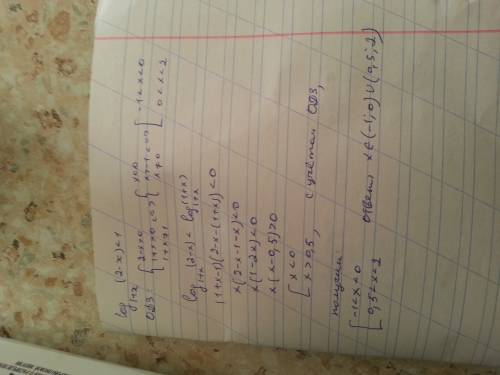 log₁₊ₓ (2-x) < 1
ОДЗ: { 2-x>0 1+x>0 1+x≠1 <=> { x<2 x>-1 x≠0 <=> [ -1<x<0 0<x<2
log₁₊ₓ (2-x) < log₁₊ₓ (1+x)
(1+x-1)(2-x-(1+x))<0
x(2-x-1-x)<0
x(1-2x)<0
x(x-0,5)>0
[ x<0 x>0,5 , с учётом ОДЗ,
получим
[ -1<x<0 0,5<x<2 ответ: x∈(-1;0)∪(0,5;2)